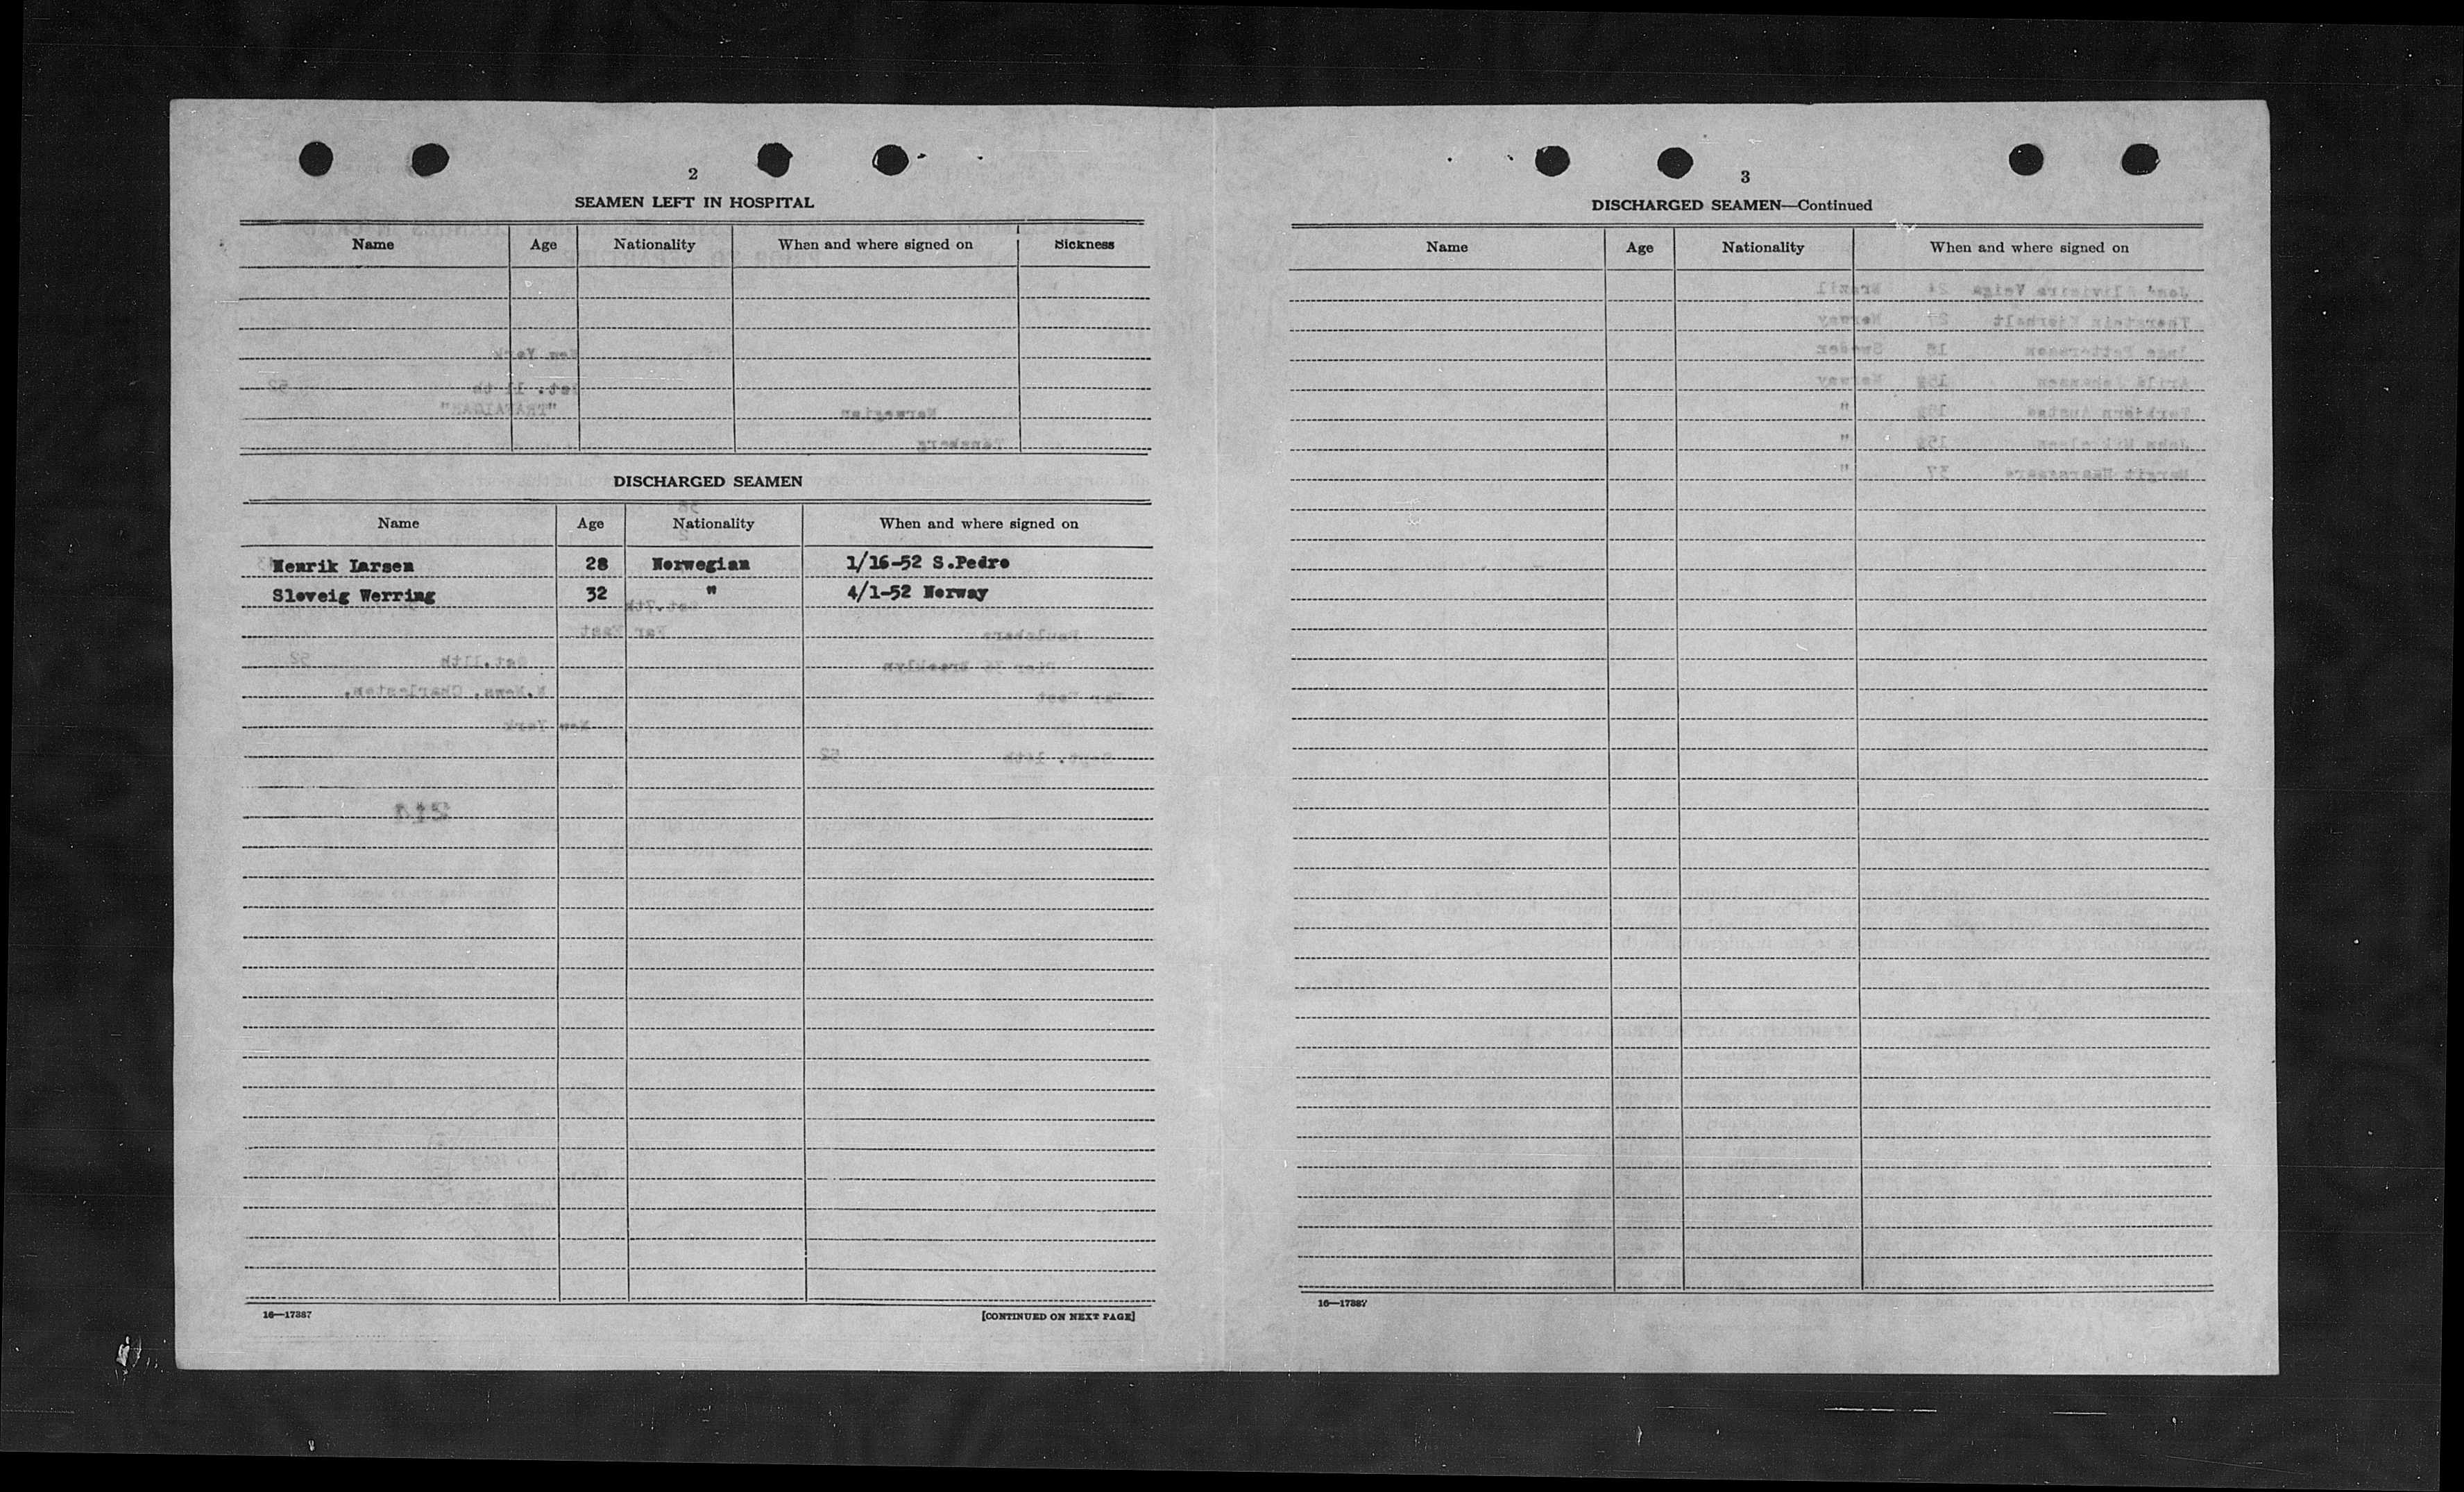 2
SEAMEN LEFT IN HOSPITAL
Name Age Nationality When and where signed on Sickness
DISCHARGED SEAMEN
Name Age Nationality When and where signed on
Henrik Larsen 28 Norwegian 1/16-52 S.Pedro
Sloveig Werring 32 " 4/1-52 Norway
16—17387 [CONTINUED ON NEXT PAGE]
3
DISCHARGED SEAMEN—Continued
Name Age Nationality When and where signed on
16—17387